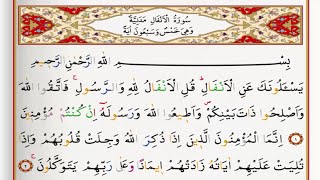 سُورَةُ الْاَنْفَالِ مَدَنِيَّةٌ
وَهِيَ خَمْسٌ وَسَبْعُونَ اٰيَةً
بِسْــــمِ اللّٰهِ الرَّحْمٰنِ الرَّحٖيمِ
يَسْـَٔلُونَكَ عَنِ الْاَنْفَالِۜ قُلِ الْاَنْفَالُ لِلّٰهِ وَالرَّسُولِۚ فَاتَّقُوا اللّٰهَ
وَاَصْلِحُوا ذَاتَ بَيْنِكُمْۖ وَاَطٖيعُوا اللّٰهَ وَرَسُولَهُٓ اِنْ كُنْتُمْ مُؤْمِنٖينَ
﴿١﴾ اِنَّمَا الْمُؤْمِنُونَ الَّذٖينَ اِذَا ذُكِرَ اللّٰهُ وَجِلَتْ قُلُوبُهُمْ وَاِذَا
تُلِيَتْ عَلَيْهِمْ اٰيَاتُهُ زَادَتْهُمْ اٖيمَانًا وَعَلٰى رَبِّهِمْ يَتَوَكَّلُونَۚ ﴿٢﴾